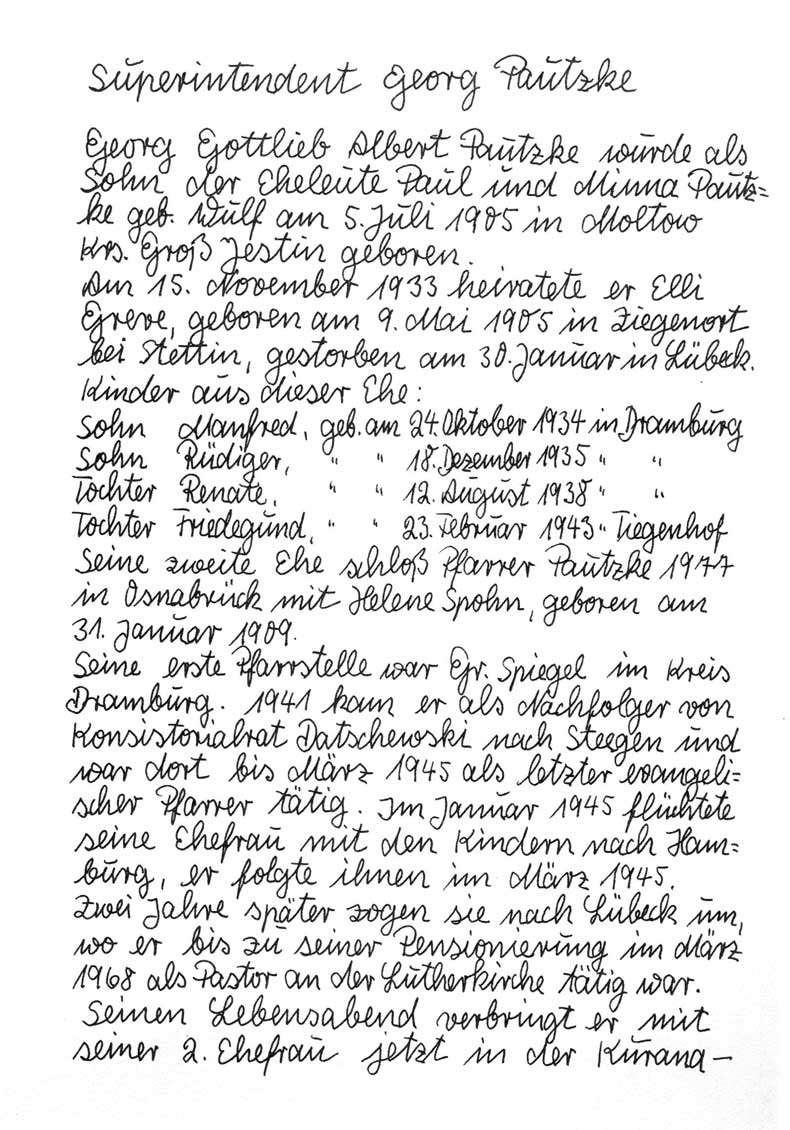 Superintendent Georg Pautzke
Georg Gottlieb Albert Pautzke wurde als
Sohn der Eheleute Paul und Minna Pautz=
ke geb. Wulf am 5. Juli 1905 in Moltow
Krs. Groß Jestin geboren.
Am 15. November 1933 heiratete er Elli
Greve, geboren am 9. Mai 1905 in Ziegenort
bei Stettin, gestorben am 30. Januar in Lübeck.
Kinder aus dieser Ehe:
Sohn Manfred, geb. am 24. Oktober 1934 in Dramburg
Sohn Rüdiger, " " 18. Dezember 1935 " "
Tochter Renate, " " 12. August 1938 " "
Tochter Friedegund, " " 23. Februar 1943 " Tiegenhof
Seine zweite Ehe schloß Pfarrer Pautzke 1977
in Osnabrück mit Helene Spohn, geboren am
31. Januar 1909.
Seine erste Pfarrstelle war Gr. Spiegel im Kreis
Dramburg. 1941 kam er als Nachfolger von
Konsistorialrat Datschewski nach Steegen und
war dort bis März 1945 als letzter evangeli=
scher Pfarrer tätig. Im Januar 1945 flüchtete
seine Ehefrau mit den Kindern nach Ham=
burg, er folgte ihnen im März 1945.
Zwei Jahre später zogen sie nach Lübeck um,
wo er bis zu seiner Pensionierung im März
1968 als Pastor an der Lutherkirche tätig war.
Seinen Lebensabend verbringt er mit
seiner 2. Ehefrau jetzt in der Kurana-